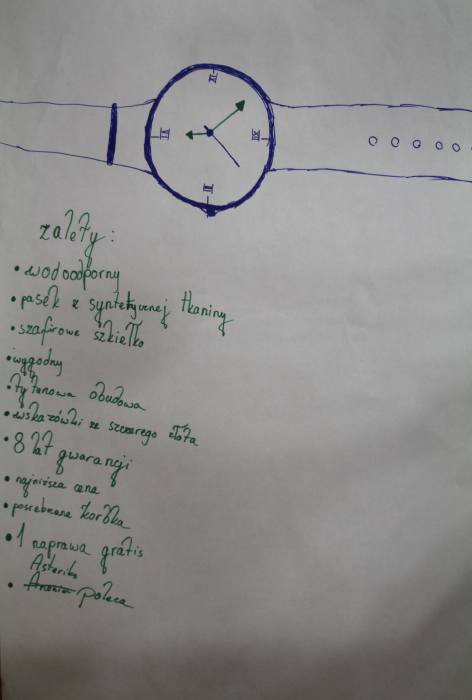 III
III
IX
II
zalety:
• wodoodporny
• pasek z syntetycznej tkaniny
• szafirowe szkiełko
• wygodny
• tytanowa obudowa
• wskazówki ze szczerego złota
• 8 lat gwarancji
• najniższa cena
• posrebrzana korbka
• 1 naprawa gratis
Asteriks
• poleca